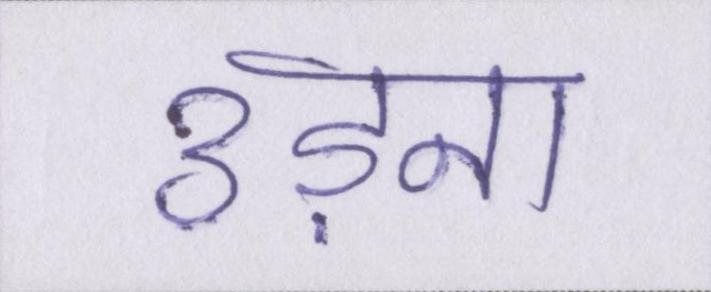 उड़ना